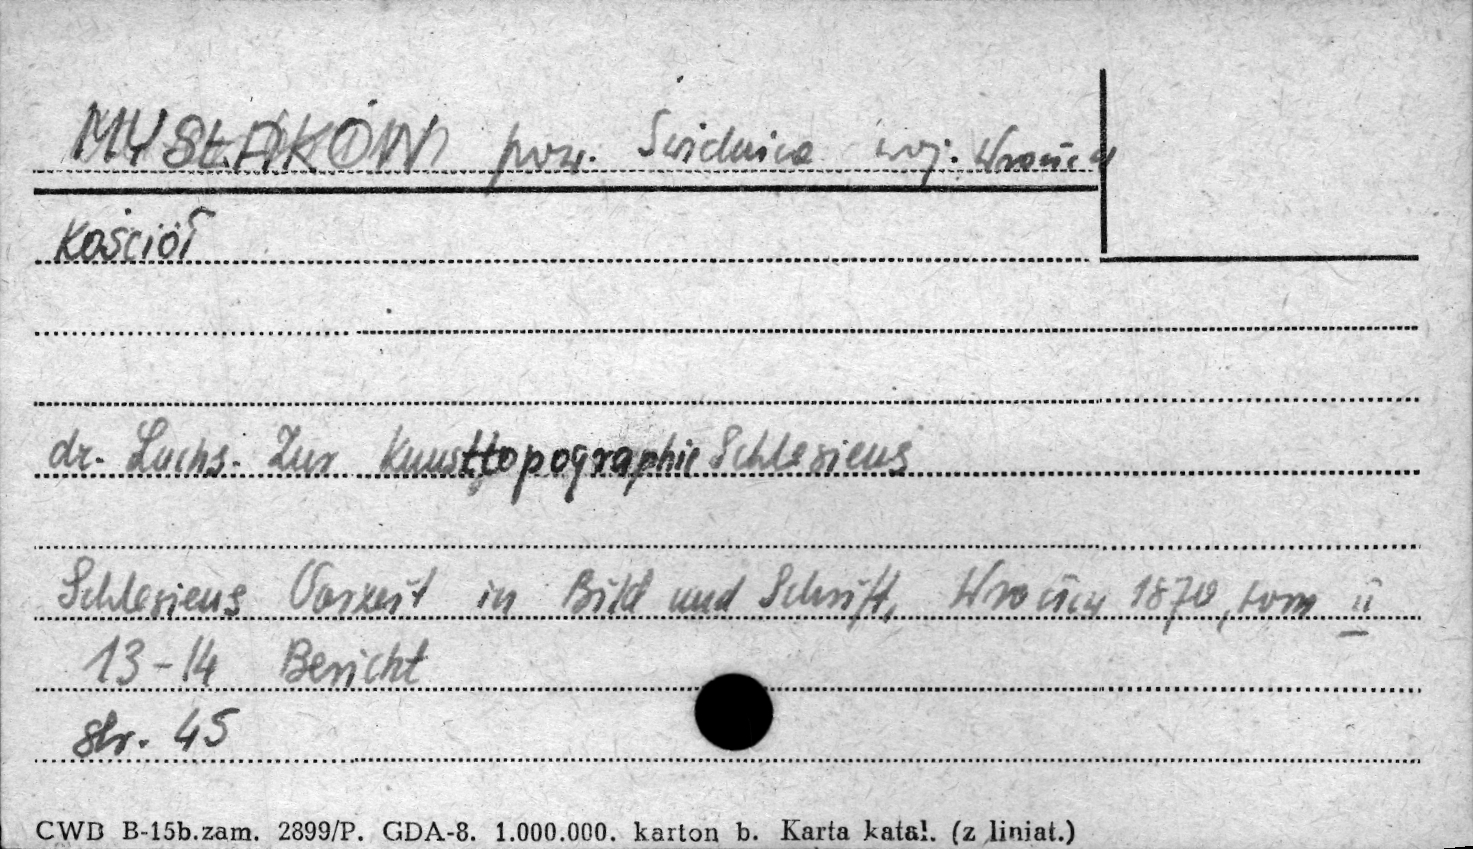 MYSŁAKÓW pow. Świdnica woj. Wrocław
Kościół
dr. Luchs. Zur Kunsttopographie Schlesiens
Schlesiens Vorzeit in Bild und Schrift, Wrocław 1870, tom II
13-14 Bericht
str. 45
CWD B-15b.zam. 2899/P. GDA-8. 1.000.000. karton b. Karta katal. (z liniat.)